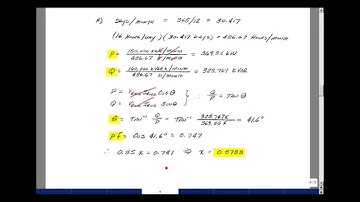 A) DAYS/MONTH = 365/12 = 30.417
(16 HOURS/DAY)(30.417 DAYS) = 486.67 HOURS/MONTH
P = 180,000 KWH/MONTH / 486.67 H/MONTH = 369.86 KW
Q = 160,000 KVARH/MONTH / 486.67 H/MONTH = 328.767 KVAR
P = VRMS IRMS COS θ
Q = VRMS IRMS SIN θ ∴ Q/P = TAN θ
θ = TAN⁻¹ Q/P = TAN⁻¹ 328.767K / 369.86K = 41.6°
pf = COS 41.6° = 0.747
∴ 0.85 X = 0.747 ⇒ X = 0.8788